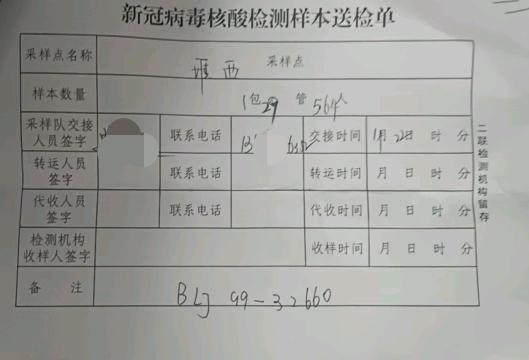 新冠病毒核酸检测样本送检单
采样点名称 西 采样点
样本数量 1包29管564人
采样队交接人员签字 联系电话 13 交接时间 1月22日 时 分
转运人员签字 联系电话 转运时间 月 日 时 分
代收人员签字 联系电话 代收时间 月 日 时 分
检测机构收样人签字 收样时间 月 日 时 分
备 注 BLJ 99-32660
二联检测机构留存